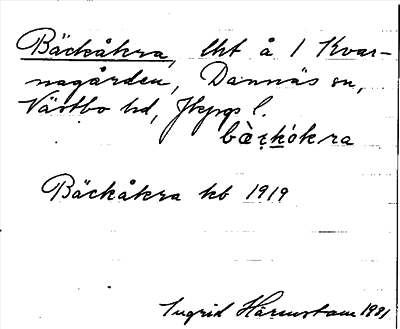 Bäckåkra, lht å 1 Kvar-
nagården, Dannäs sn,
Västbo hd, Jkpgs l.
Bäckåkra kb 1919
Ingrid Härenstam 1991